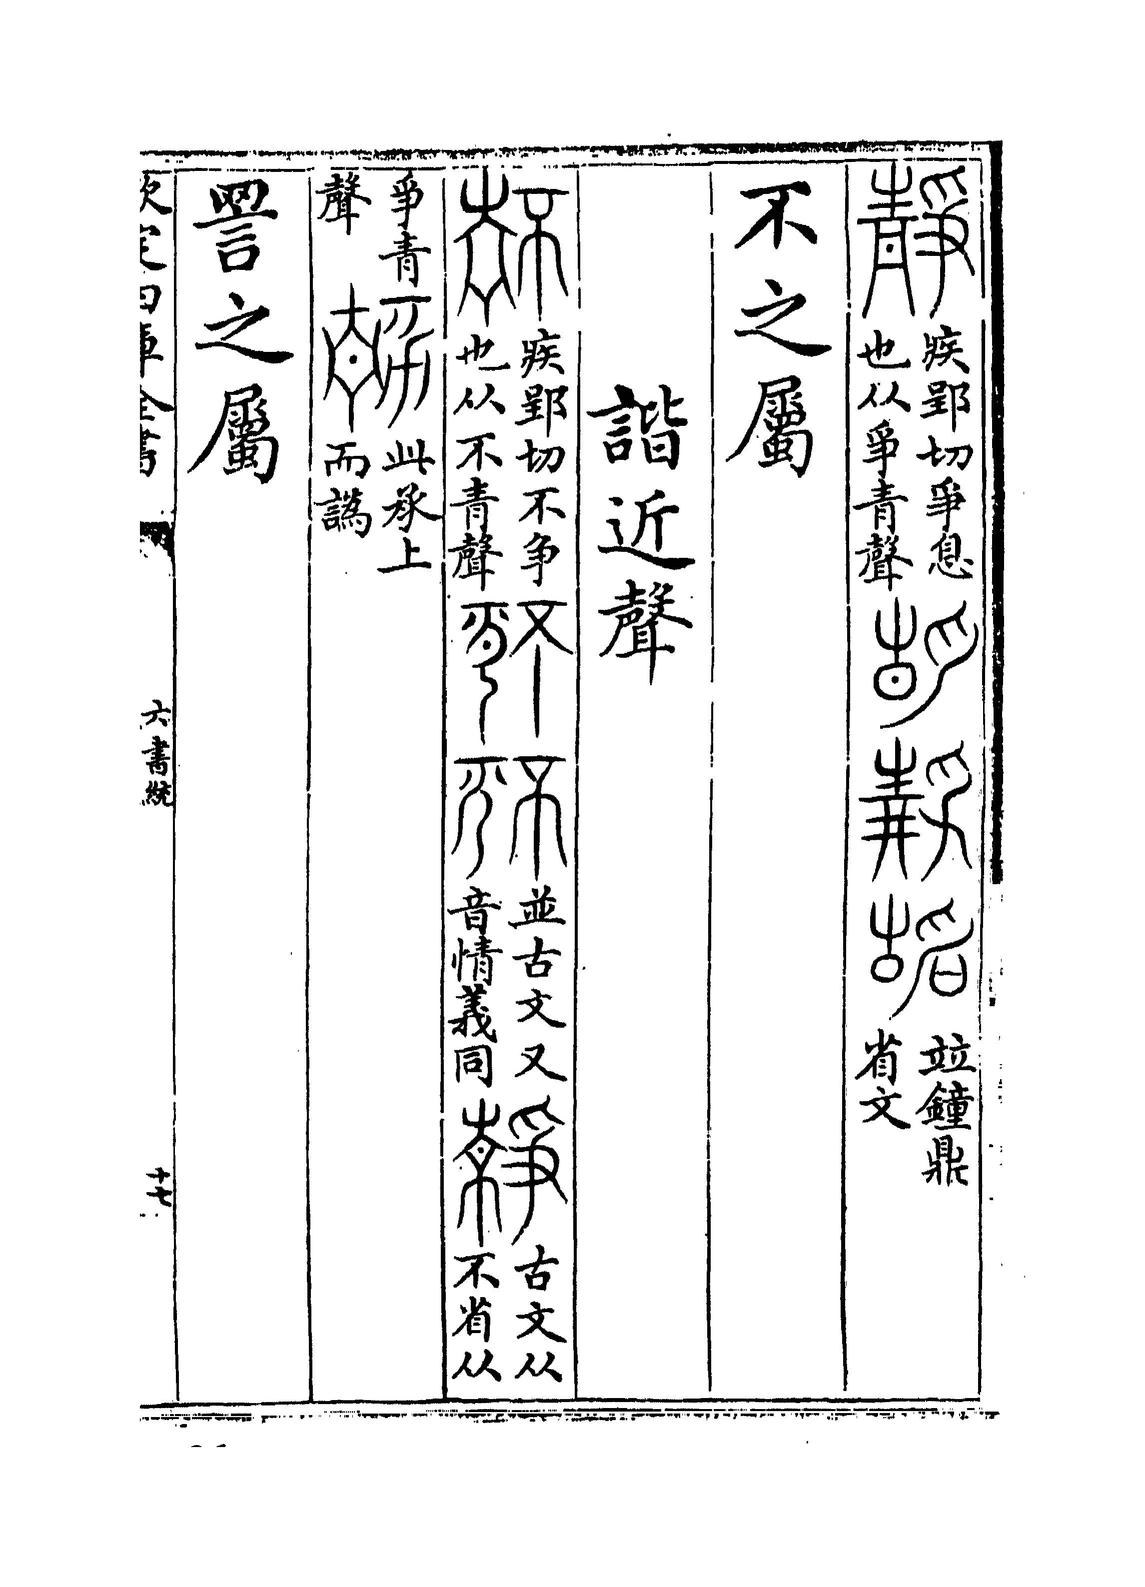 靜 疾郢切爭息也从爭青聲 竝鐘鼎省文
不之屬
諧近聲
疾郢切不争也从不青聲 並古文又音情義同 古文从不省从
爭青聲 此承上而譌
詈之屬
欽定四庫全書
六書統
十七